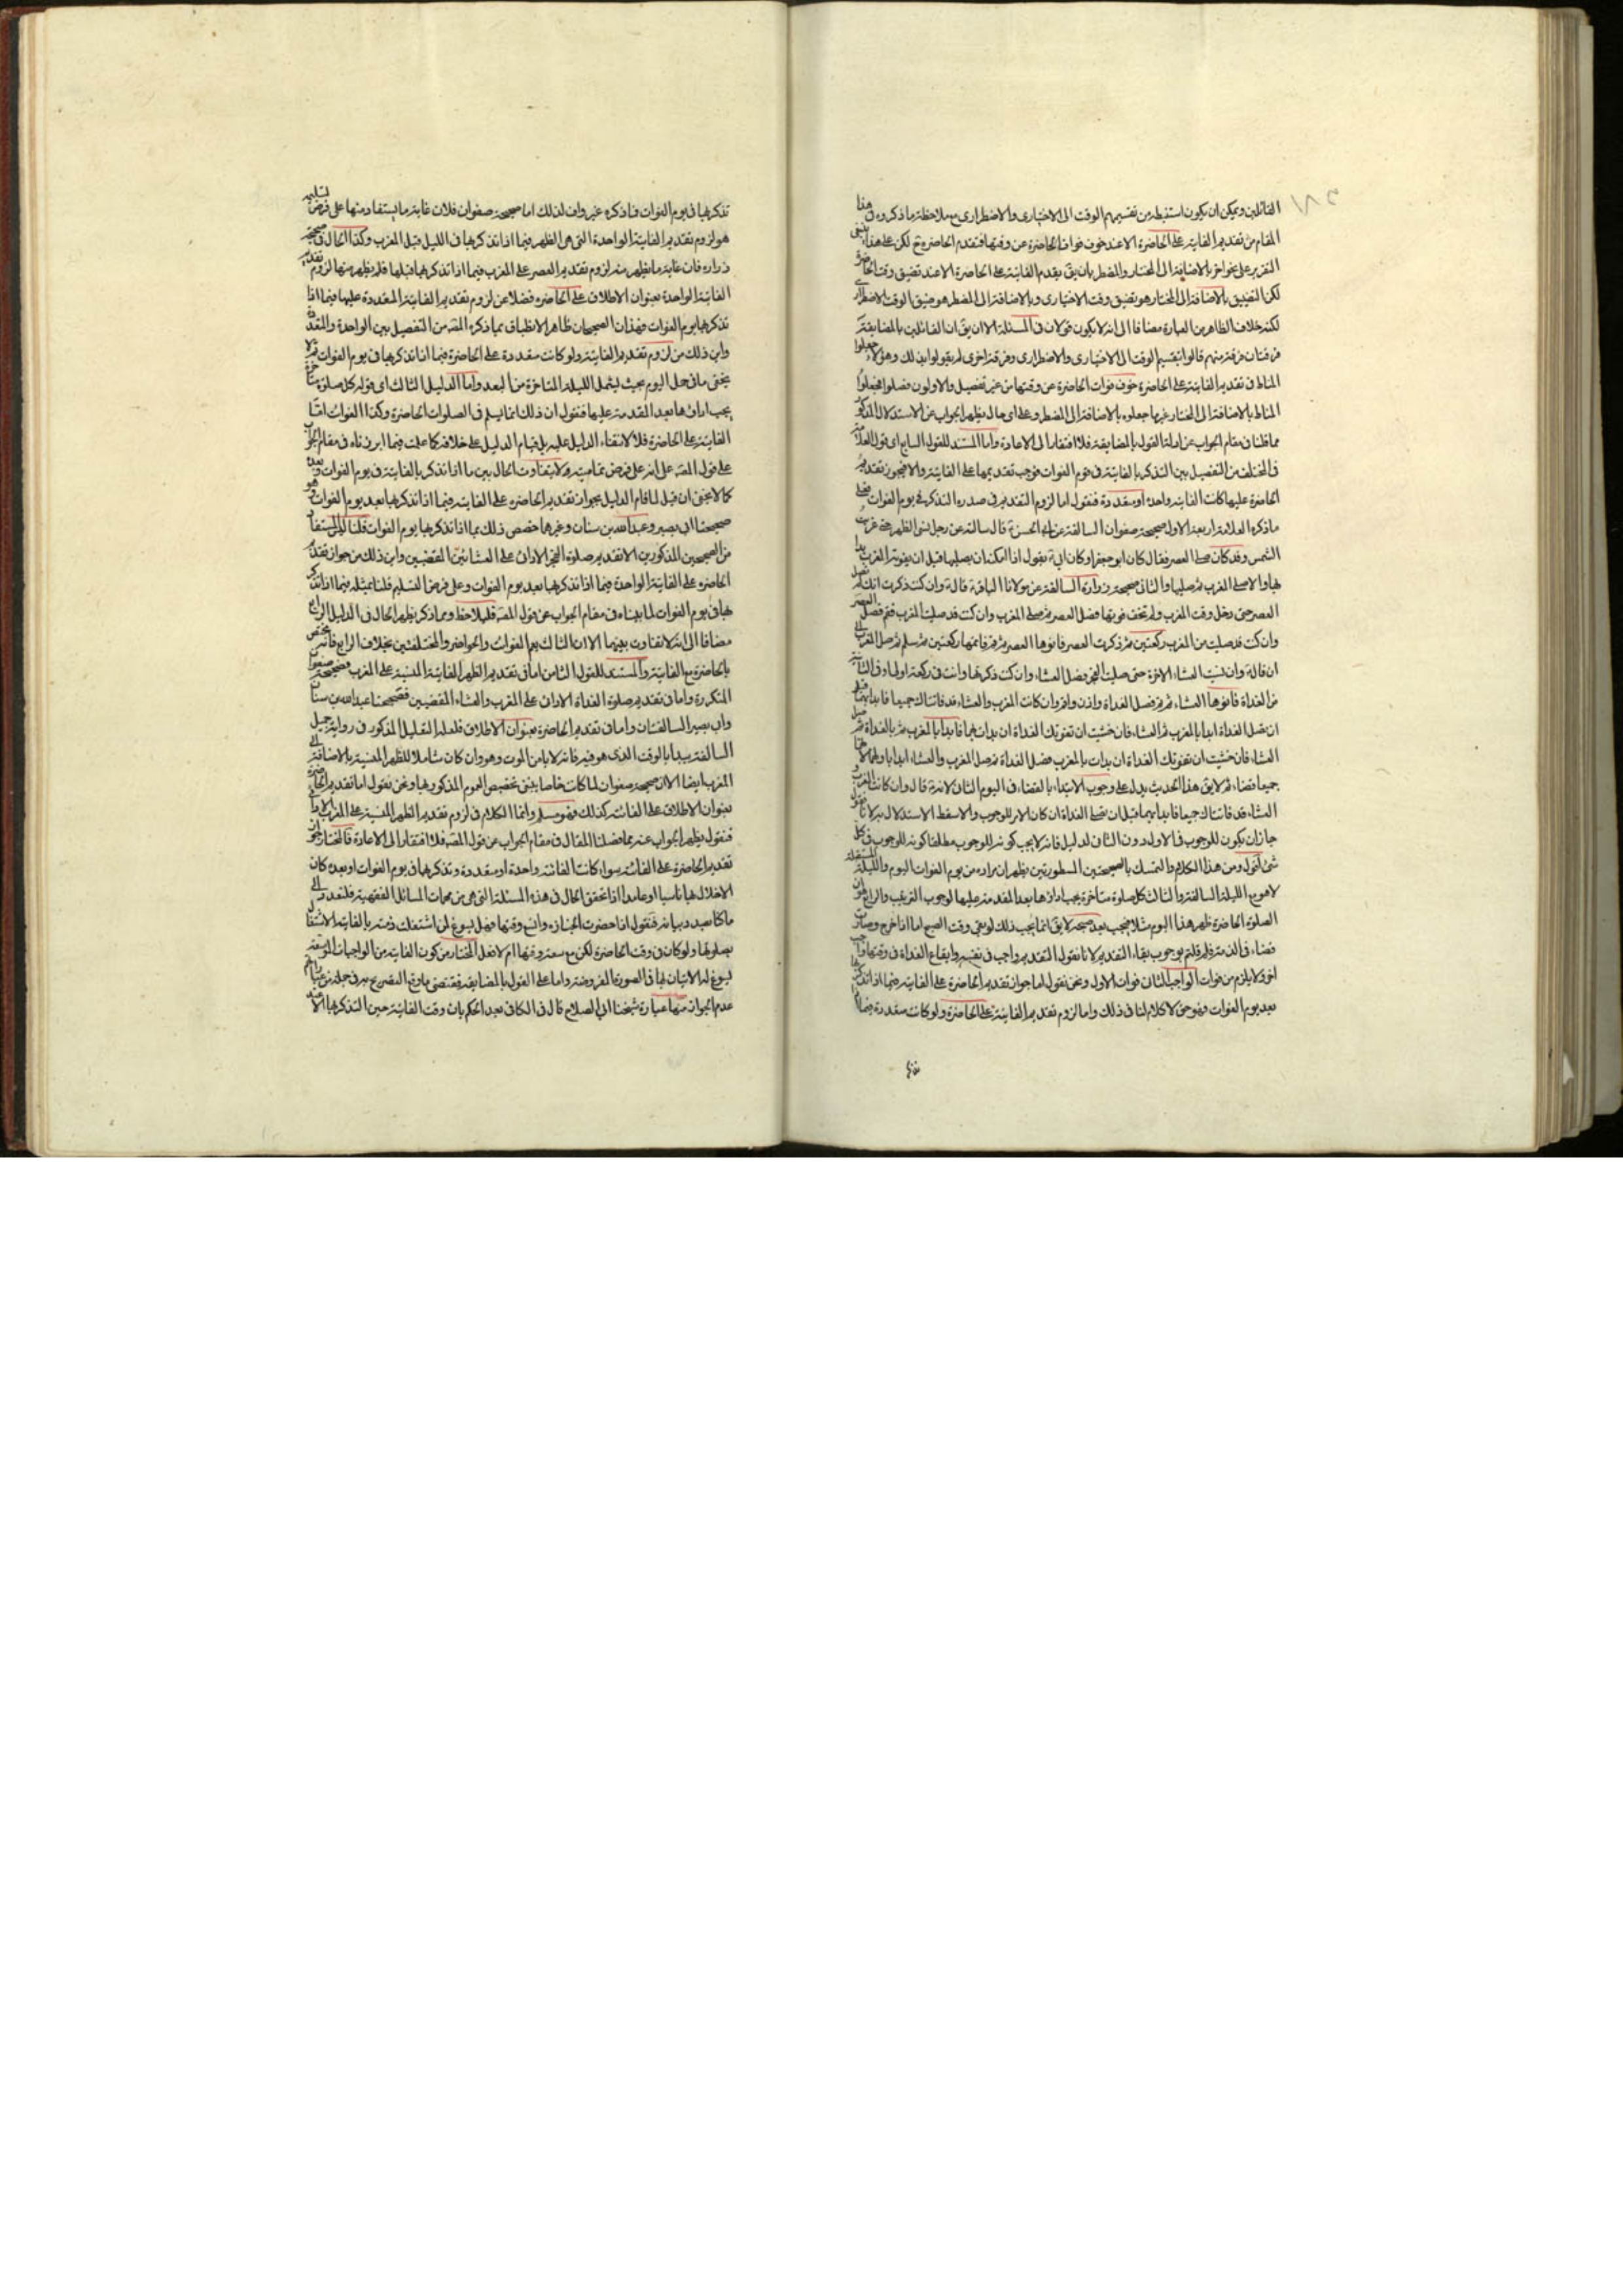 القائلين ويمكن ان يكون استنبطه من تقسيمهم الوقت الى الاختيارى والاضطرارى مع ملاحظة ما ذكروه فى هذا
المقام من تقديم الفايتة على الحاضرة الا عند خوف فوات الحاضرة عن وقتها فتقدم الحاضرة ح لكن على هذا ينبغى
التقرير على نحو اخر بالاضافة الى المختار والمضطر بان يق بقدم الفايتة على الحاضرة الا عند تضيق وقت الحاضرة
لكن التضيق بالاضافة الى المختار هو تضيق وقت الاختيارى وبالاضافة الى المضطر هو ضيق الوقت الاضطرارى
لكنه خلاف الظاهر من العبارة مضافا الى انه لا يكون قولان فى المسئلة الا ان يق ان القائلين بالمضايقة
فرقتان فرقة منهم قالوا بتقسيم الوقت الى الاختيارى والاضطرارى وفرقة اخرى لم يقولوا بذلك وهؤلاء جعلوا
المناط فى تقديم الفايتة على الحاضرة خوف فوات الحاضرة عن وقتها من غير تفصيل والاولون فصلوا فجعلوا
المناط بالاضافة الى المختار غير ما جعلوه بالاضافة الى المضطر وعلى اى حال يظهر الجواب عن الاستدلال المذكور
مما قلنا فى مقام الجواب عن ادلة القول بالمضايقة فلا افتقار الى الاعادة واما المستند للقول السابع اى قول العلامة
فى المختلف من التفصيل بين التذكر بالفايتة فى يوم الفوات فوجب تقديمها على الفايتة والا فيجوز تقديم
الحاضرة عليها كانت الفايتة واحدة او متعددة فنقول اما لزوم التقديم فى صورة التذكر فى يوم الفوات فعلى
ماذكره العلامة اربعة الاول صحيحة صفوان السالفة عن ابى الحسن ع قال سالته عن رجل نسى الظهر حتى غربت
الشمس وقد كان صلى العصر فقال كان ابو جعفر او كان ابى ع يقول اذا امكنه ان يصليها قبل ان يفوته المغرب بدا
بها والا صلى المغرب ثم صليها والثانى صحيحة زرارة السالفة عن مولانا الباقر ع قال ع وان كنت ذكرت انك لم تصل
العصر حتى دخل وقت المغرب ولم تخف فوتها فصل العصر ثم صلى المغرب وان كنت قد صليت المغرب فقم فصل العصر
وان كنت قد صليت من المغرب ركعتين ثم ذكرت العصر فانوها العصر ثم قم فاتمها ركعتين ثم سلم ثم صل المغرب الى
ان قال ع وان نسيت العشاء الاخرة حتى صليت الفجر فصل العشاء وان كنت ذكرتها وانت فى ركعة اولى او فى الثانية
من الغداة فانوها العشاء ثم قم فصل الغداة واذن واقم وان كانت المغرب والعشاء قد فاتتاك جميعا فابدا بهما قبل
ان تصل الغداة ابدا بالمغرب ثم العشاء فان خشيت ان تفوتك الغداة ان بدات بهما فابدا بالمغرب ثم بالغداة ثم صل
العشاء فان خشيت ان تفوتك الغداة ان بدات بالمغرب فصل الغداة ثم صل المغرب والعشاء ابدا باولهما لانهما
جميعا قضاء ثم لا يق هذا الحديث يدل على وجوب الابتداء بالقضاء فى اليوم الثانى لانه ع قال وان كانت المغرب و
العشاء قد فاتتاك جميعا فابدا بهما قبل ان تصلى الغداة ان كان الامر للوجوب والا سقط الاستدلال به لانا نقول
جاز ان يكون للوجوب فى الاول دون الثانى لدليل فانه لا يجب كونه للوجوب مطلقا كونه للوجوب فى كل
شئ اقول ومن هذا الكلام والتمسك بالصحيحتين المسطورتين يظهر ان مراده من يوم الفوات اليوم والليلة المستقبلة
لا هو مع الليلة السالفة والثالث كل صلوة متاخرة يجب اداؤها بعد المقدمة عليها لوجوب الترتيب والرابع هو ان
الصلوة الحاضرة ظهر هذا اليوم مثلا فيجب بعد صبحه لا يق انما يجب ذلك لو بقى وقت الصبح اما اذا خرج وصارت
قضاء فى الذمة فلم قلتم بوجوب بقاء التقديم لانا نقول التقديم واجب فى نفسه وايقاع الغداة فى وقتها واجب
اخر ولا يلزم من فوات الواجب الثانى فوات الاول ونحن نقول اما جواز تقديم الحاضرة على الفايتة فيما اذا تذكرها
بعد يوم الفوات فهو حق لا كلام لنا فى ذلك واما لزوم تقديم الفايتة على الحاضرة ولو كانت متعددة فيما اذا
تذكرها فى يوم الفوات فما ذكره غير واف لذلك اما صحيحة صفوان فلان غاية ما يستفاد منها على فرض تسليمه
هو لزوم تقديم الفايتة الواحدة التى هى الظهر فيما اذا تذكرها فى الليل قبل المغرب وكذا الحال فى صحيحة
زرارة فان غاية ما يظهر منه لزوم تقديم العصر على المغرب فيما اذا تذكرها قبلها فلم يظهر منها لزوم تقديم
الفايتة الواحدة بعنوان الاطلاق على الحاضرة فضلا عن لزوم تقديم الفايتة المتعددة عليها فيما اذا
تذكرها يوم الفوات فهذان الصحيحان ظاهر الانطباق بما ذكره المص من التفصيل بين الواحدة والمتعددة
واين ذلك من لزوم تقديم الفايتة ولو كانت متعددة على الحاضرة فيما اذا تذكرها فى يوم الفوات ثم لا
يخفى ما فى حمل اليوم بحيث يشمل الليلة المتاخرة من البعد واما الدليل الثالث اى قوله كل صلوة متاخرة
يجب اداؤها بعد المقدمة عليها فنقول ان ذلك انما يسلم فى الصلوات الحاضرة وكذا الفوات اما
الفايتة على الحاضرة فلا لانتفاء الدليل عليه بل قيام الدليل على خلافه كما علمت فيما ابرزناه فى مقام الجواب
على قول المص على انه على فرض تماميته لا يتفاوت الحال بين ما اذا تذكر بالفايتة فى يوم الفوات وبعده
كما لا يخفى ان قيل لما قام الدليل بجواز تقديم الحاضرة على الفايتة فيما اذا تذكرها بعد يوم الفوات وهو
صحيحتا ابى بصير وعبد الله بن سنان وغيرهما خصص ذلك بما اذا تذكرها يوم الفوات قلنا المستفاد
من الصحيحين المذكورين الا تقديم صلوة الفجر الادائى على العشائين المقضيين واين ذلك من جواز تقديم
الحاضرة على الفايتة الواحدة فيما اذا تذكرها بعد يوم الفوات وعلى فرض التسليم قلنا بمثله فيما اذا تذكر
بها فى يوم الفوات لما بيناه فى مقام الجواب عن قول المص فليلاحظ ومما ذكر يظهر الحال فى الدليل الرابع
مضافا الى انه لا تفاوت بينهما الا ان الثالث يعم الفوات والحواضر والمختلفتين بخلاف الرابع فانه مختص
بالحاضرة مع الفايتة والمستند للقول الثامن اما فى تقديم الظهر الفايتة المنسية على المغرب فصحيحة صفوان
المتكررة واما فى تقديم صلوة الغداة الادائى على المغرب والعشاء المقضيين فصحيحتا عبد الله بن سنان
وابى بصير السالفتان واما فى تقديم الحاضرة بعنوان الاطلاق فلعله التعليل المذكور فى رواية جميل
السالفة يبدا بالوقت الذى هو فيه فانه لا يامن الموت وهو وان كان شاملا للظهر المنسية بالاضافة الى
المغرب ايضا الا ان صحيحة صفوان لما كانت خاصا ينبغى تخصيص العموم المذكور بها ونحن نقول اما تقديم الحاضرة
بعنوان الاطلاق على الفائتة كذلك فهو مسلم وانما الكلام فى لزوم تقديم الظهر المنسية على المغرب الادائى
فنقول يظهر الجواب عنه مما فصلنا المقال فى مقام الجواب عن قول المص فلا افتقار الى الاعادة فالمختار جواز
تقديم الحاضرة على الفائتة سواء كانت الفائتة واحدة او متعددة وتذكرها فى يوم الفوات او بعده كان
الاخلال بها ناسيا او عامدا اذا تحقق الحال فى هذه المسئلة التى هى من مهمات المسائل الفقهية فلنعد الى
ما كنا بصدد بيانه فنقول اذا حضرت الجنازة واتسع وقتها فهل يسوغ لمن اشتغلت ذمته بالفايتة الاشتغال
بصلوتها ولو كان فى وقت الحاضرة لكن مع سعة وقتها ام لا فعلى المختار من كون الفايتة من الواجبات الموسعة
يسوغ له الاتيان بها فى الصورة المفروضة واما على القول بالمضايقة فمقتضى ما وقع التصريح به فى جملة من عباراتهم
عدم الجواز منها عبارة شيخنا ابى الصلاح قال فى الكافى بعد الحكم بان وقت الفايتة حين التذكر بها الا عند